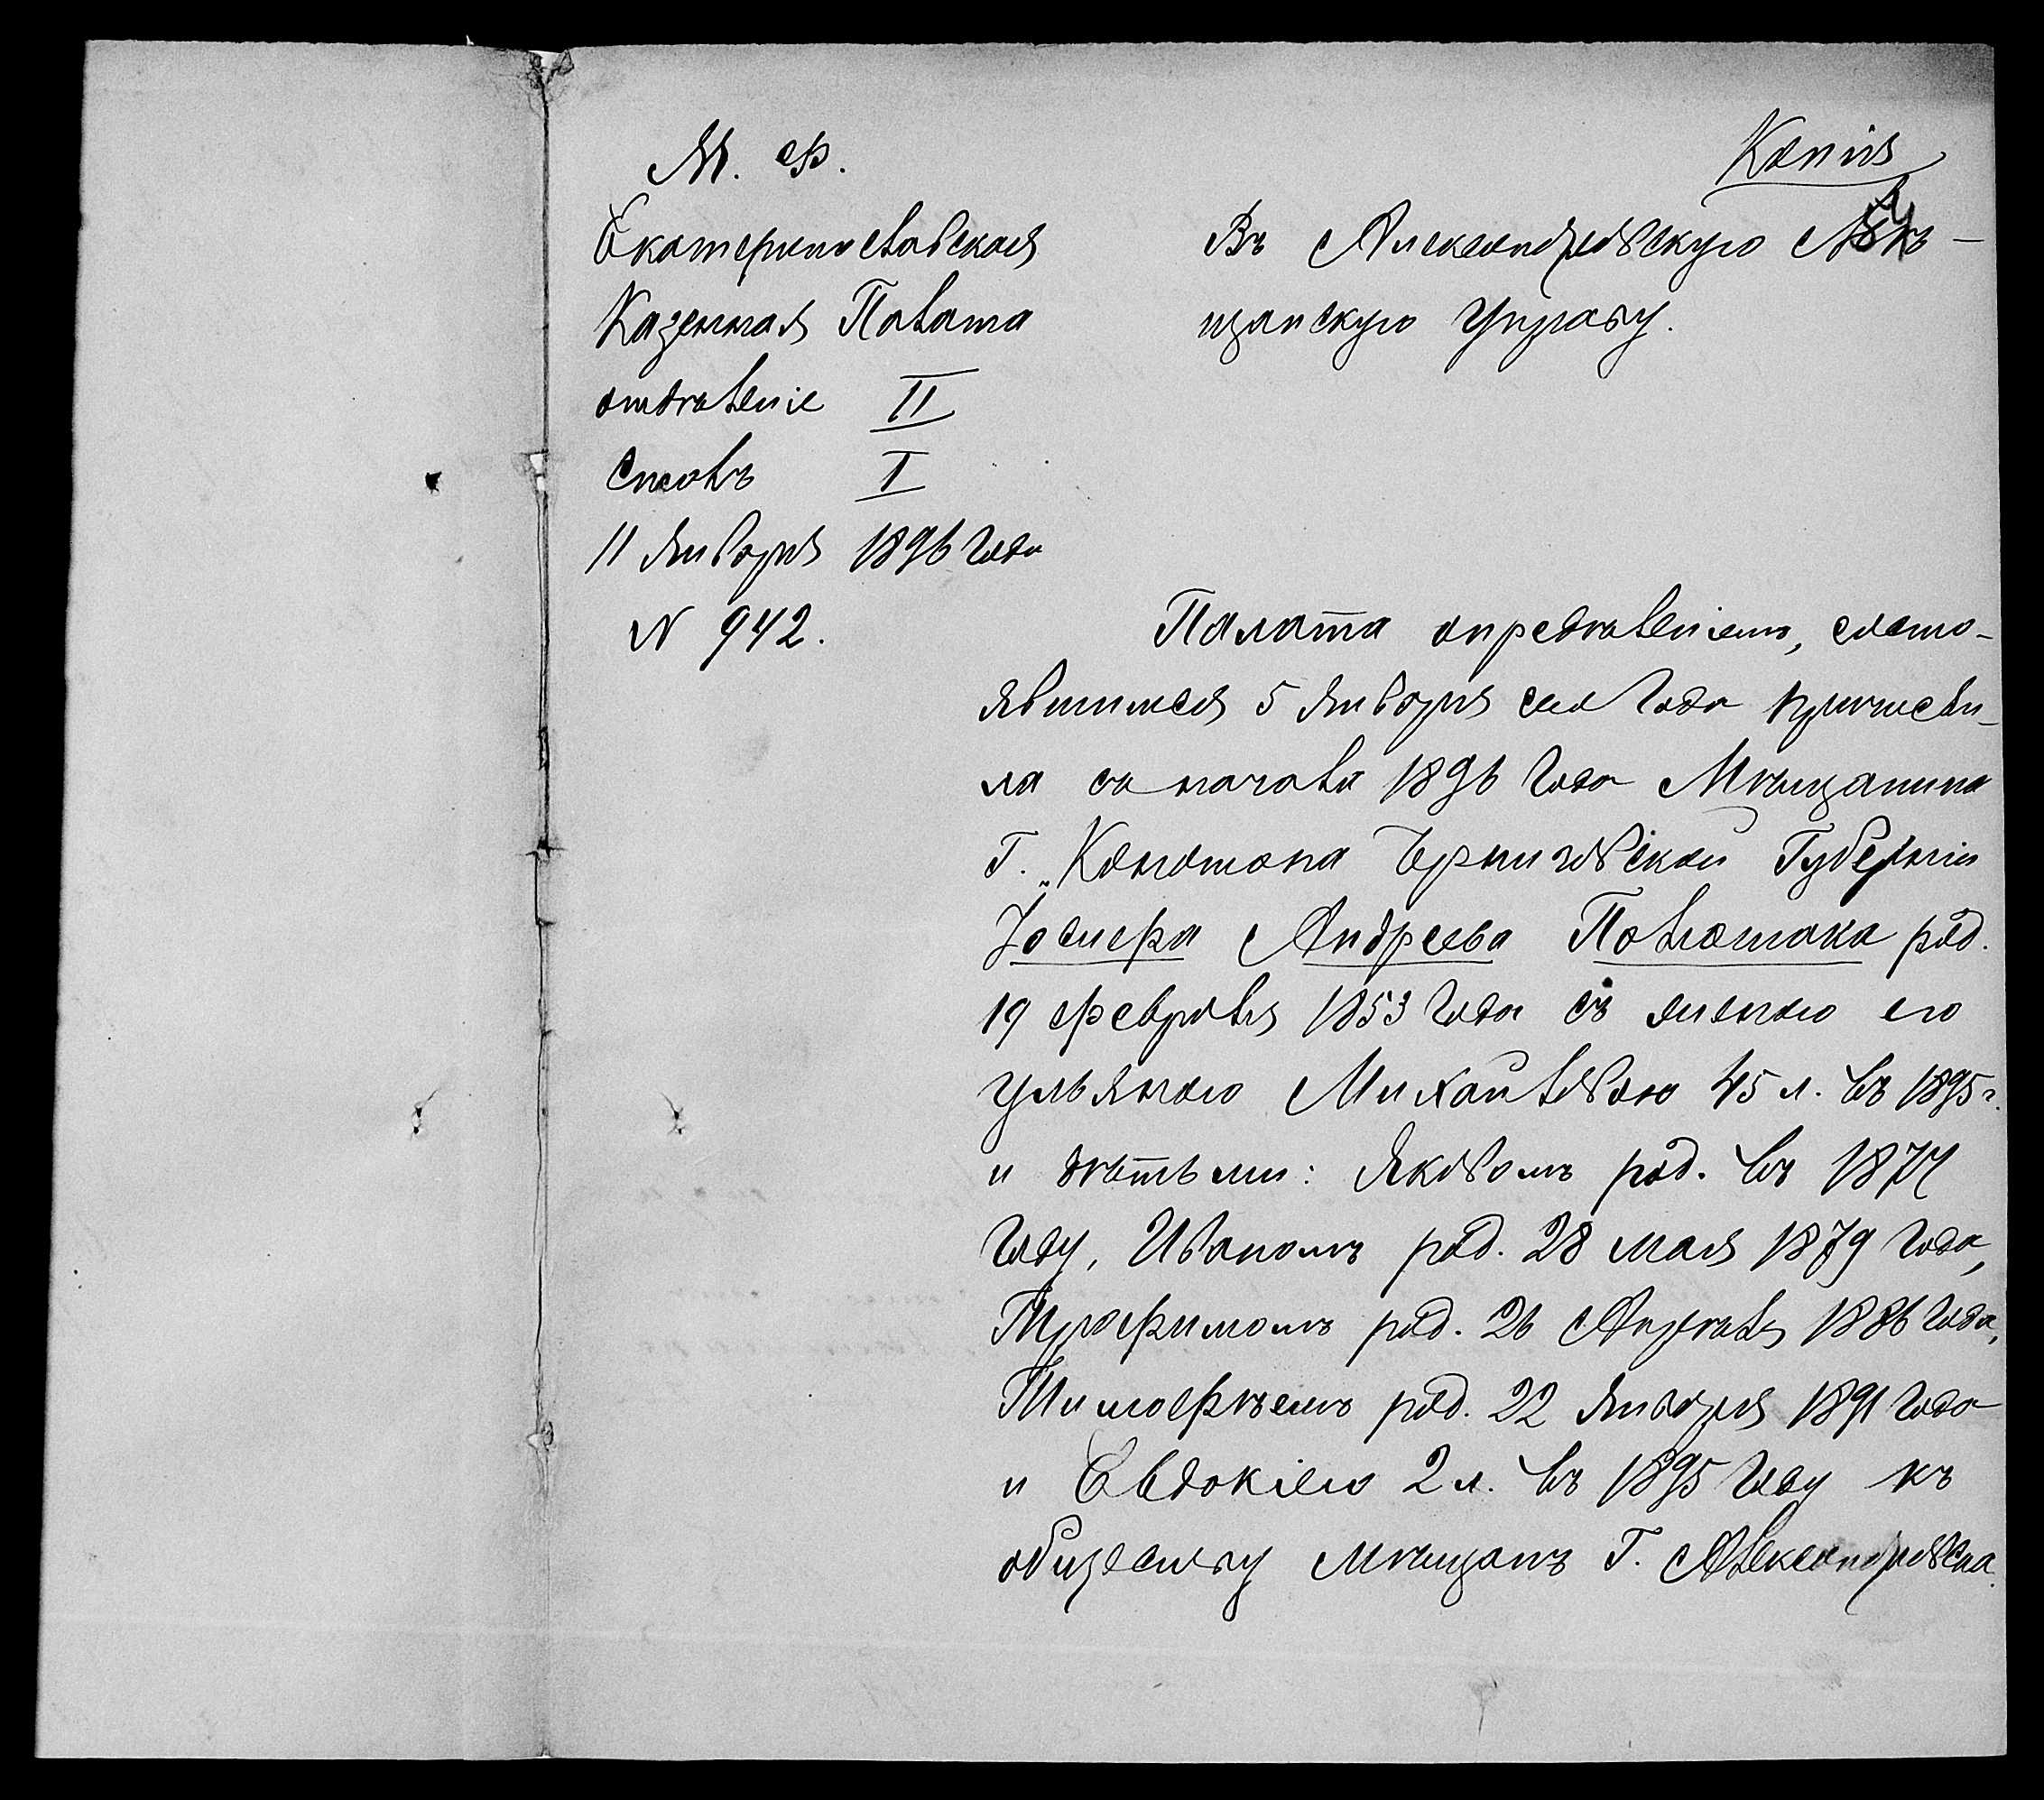 М. Ф.
Екатеринославская
Казенная Палата
отдѣленіе II
Столъ I
11 Января 1896 года
N 942.
Копія
Въ Александровскую Мѣ-
щанскую Управу.
Палата опредѣленіемъ, состо-
явшимся 5 Января сего года причисли-
ла съ начала 1896 года Мѣщанина
Г. Конотопа Черниговской Губерніи
Іосифа Андреева род.
19 Февраля 1853 года съ женою его
Ульяною Михайловою 45 л. въ 1895 г.
и дѣтьми: Яковомъ род. въ 1877
году, Иваномъ род. 28 мая 1879 года,
Трофимомъ род. 26 Апрѣля 1886 года,
Тимофѣемъ род. 22 Января 1891 года
и Евдокіею 2 л. въ 1895 году къ
обществу мѣщанъ Г. Александровска.